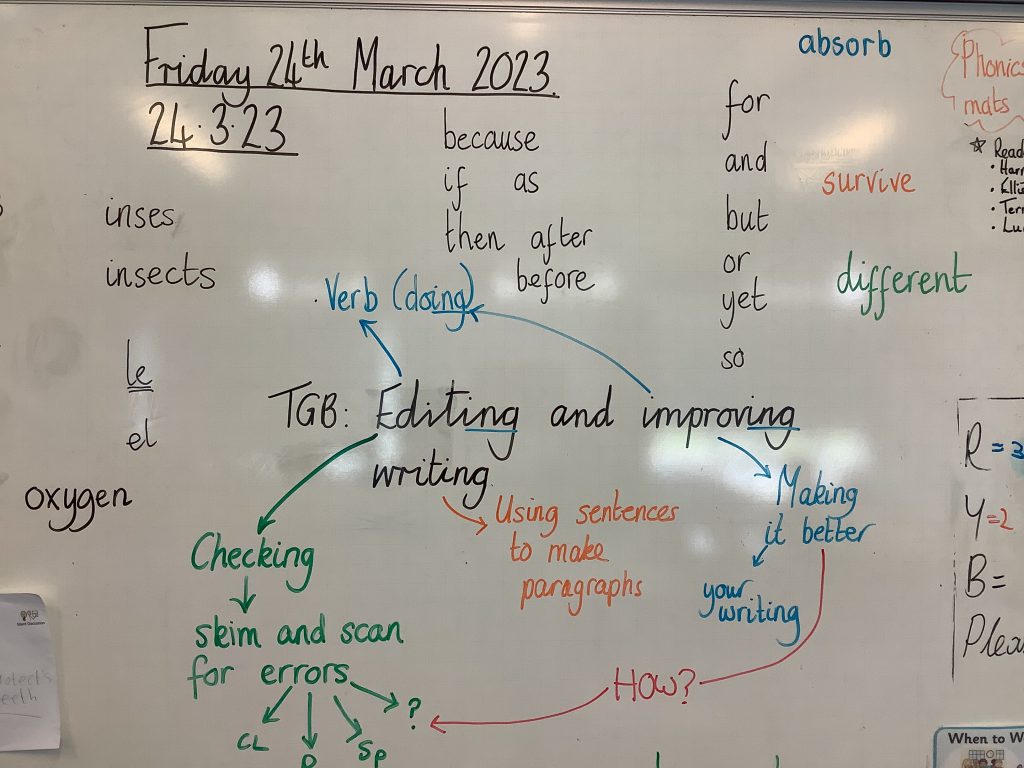 Friday 24th March 2023.
24.3.23
absorb
Phonics
mats
because
if as
then after
before
for
and
but
or
yet
so
survive
different
inses
insects
le
el
oxygen
Verb (doing)
TGB: Editing and improving
writing
Checking
skim and scan
for errors
CL
P
Sp
?
Using sentences
to make
paragraphs
Making
it better
your
writing
How?
R = 3
Y = 2
B =
When to W